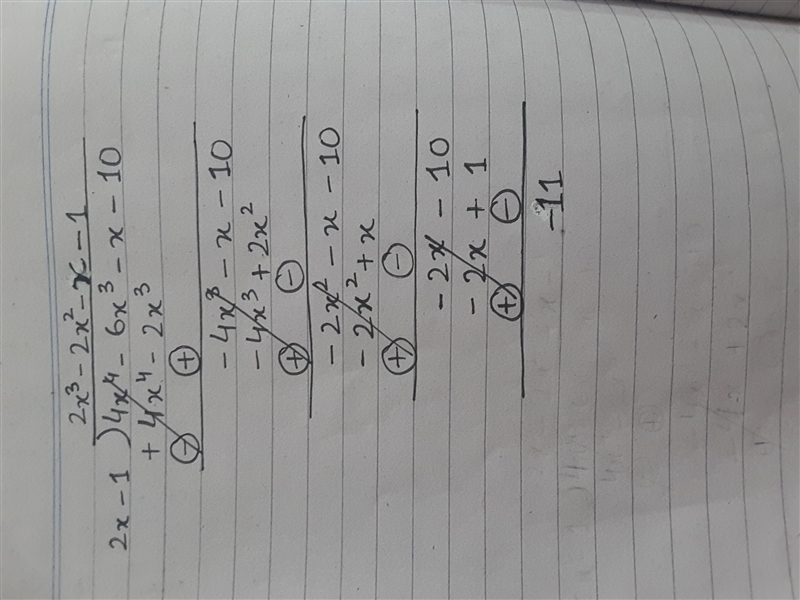 2x³ - 2x² - x - 1
2x - 1 ) 4x⁴ - 6x³ - x - 10
+ 4x⁴ - 2x³
⊖ ⊕
- 4x³ - x - 10
- 4x³ + 2x²
⊕ ⊖
- 2x² - x - 10
- 2x² + x
⊕ ⊖
- 2x - 10
- 2x + 1
⊕ ⊖
- 11